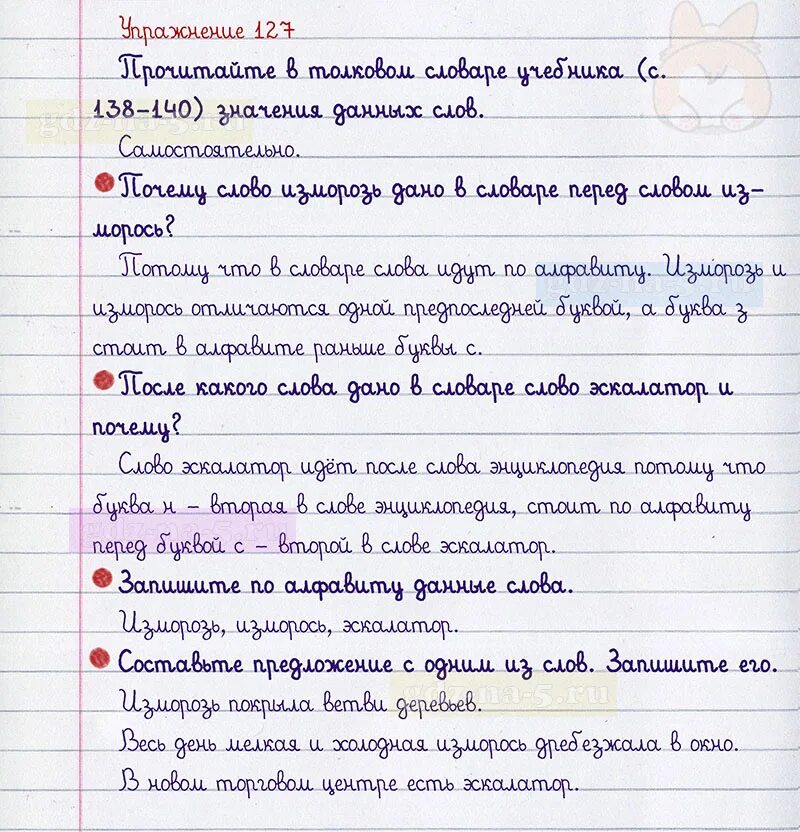 Упражнение 127
Прочитайте в толковом словаре учебника (с.
138-140) значения данных слов.
gdz-na-5.ru
Самостоятельно.
Почему слово изморозь дано в словаре перед словом из-
морось?
Потому что в словаре слова идут по алфавиту. Изморозь и
gdz-na-5.ru
изморось отличаются одной предпоследней буквой, а буква з
стоит в алфавите раньше буквы с.
После какого слова дано в словаре слово эскалатор и
почему?
Слово эскалатор идёт после слова энциклопедия потому что
буква н – вторая в слове энциклопедия, стоит по алфавиту
gdz-na-5.ru
перед буквой с – второй в слове эскалатор.
Запишите по алфавиту данные слова.
Изморозь, изморось, эскалатор.
Составьте предложение с одним из слов. Запишите его.
gdz-na-5.ru
Изморозь покрыла ветви деревьев.
Весь день мелкая и холодная изморось дребезжала в окно.
В новом торговом центре есть эскалатор.